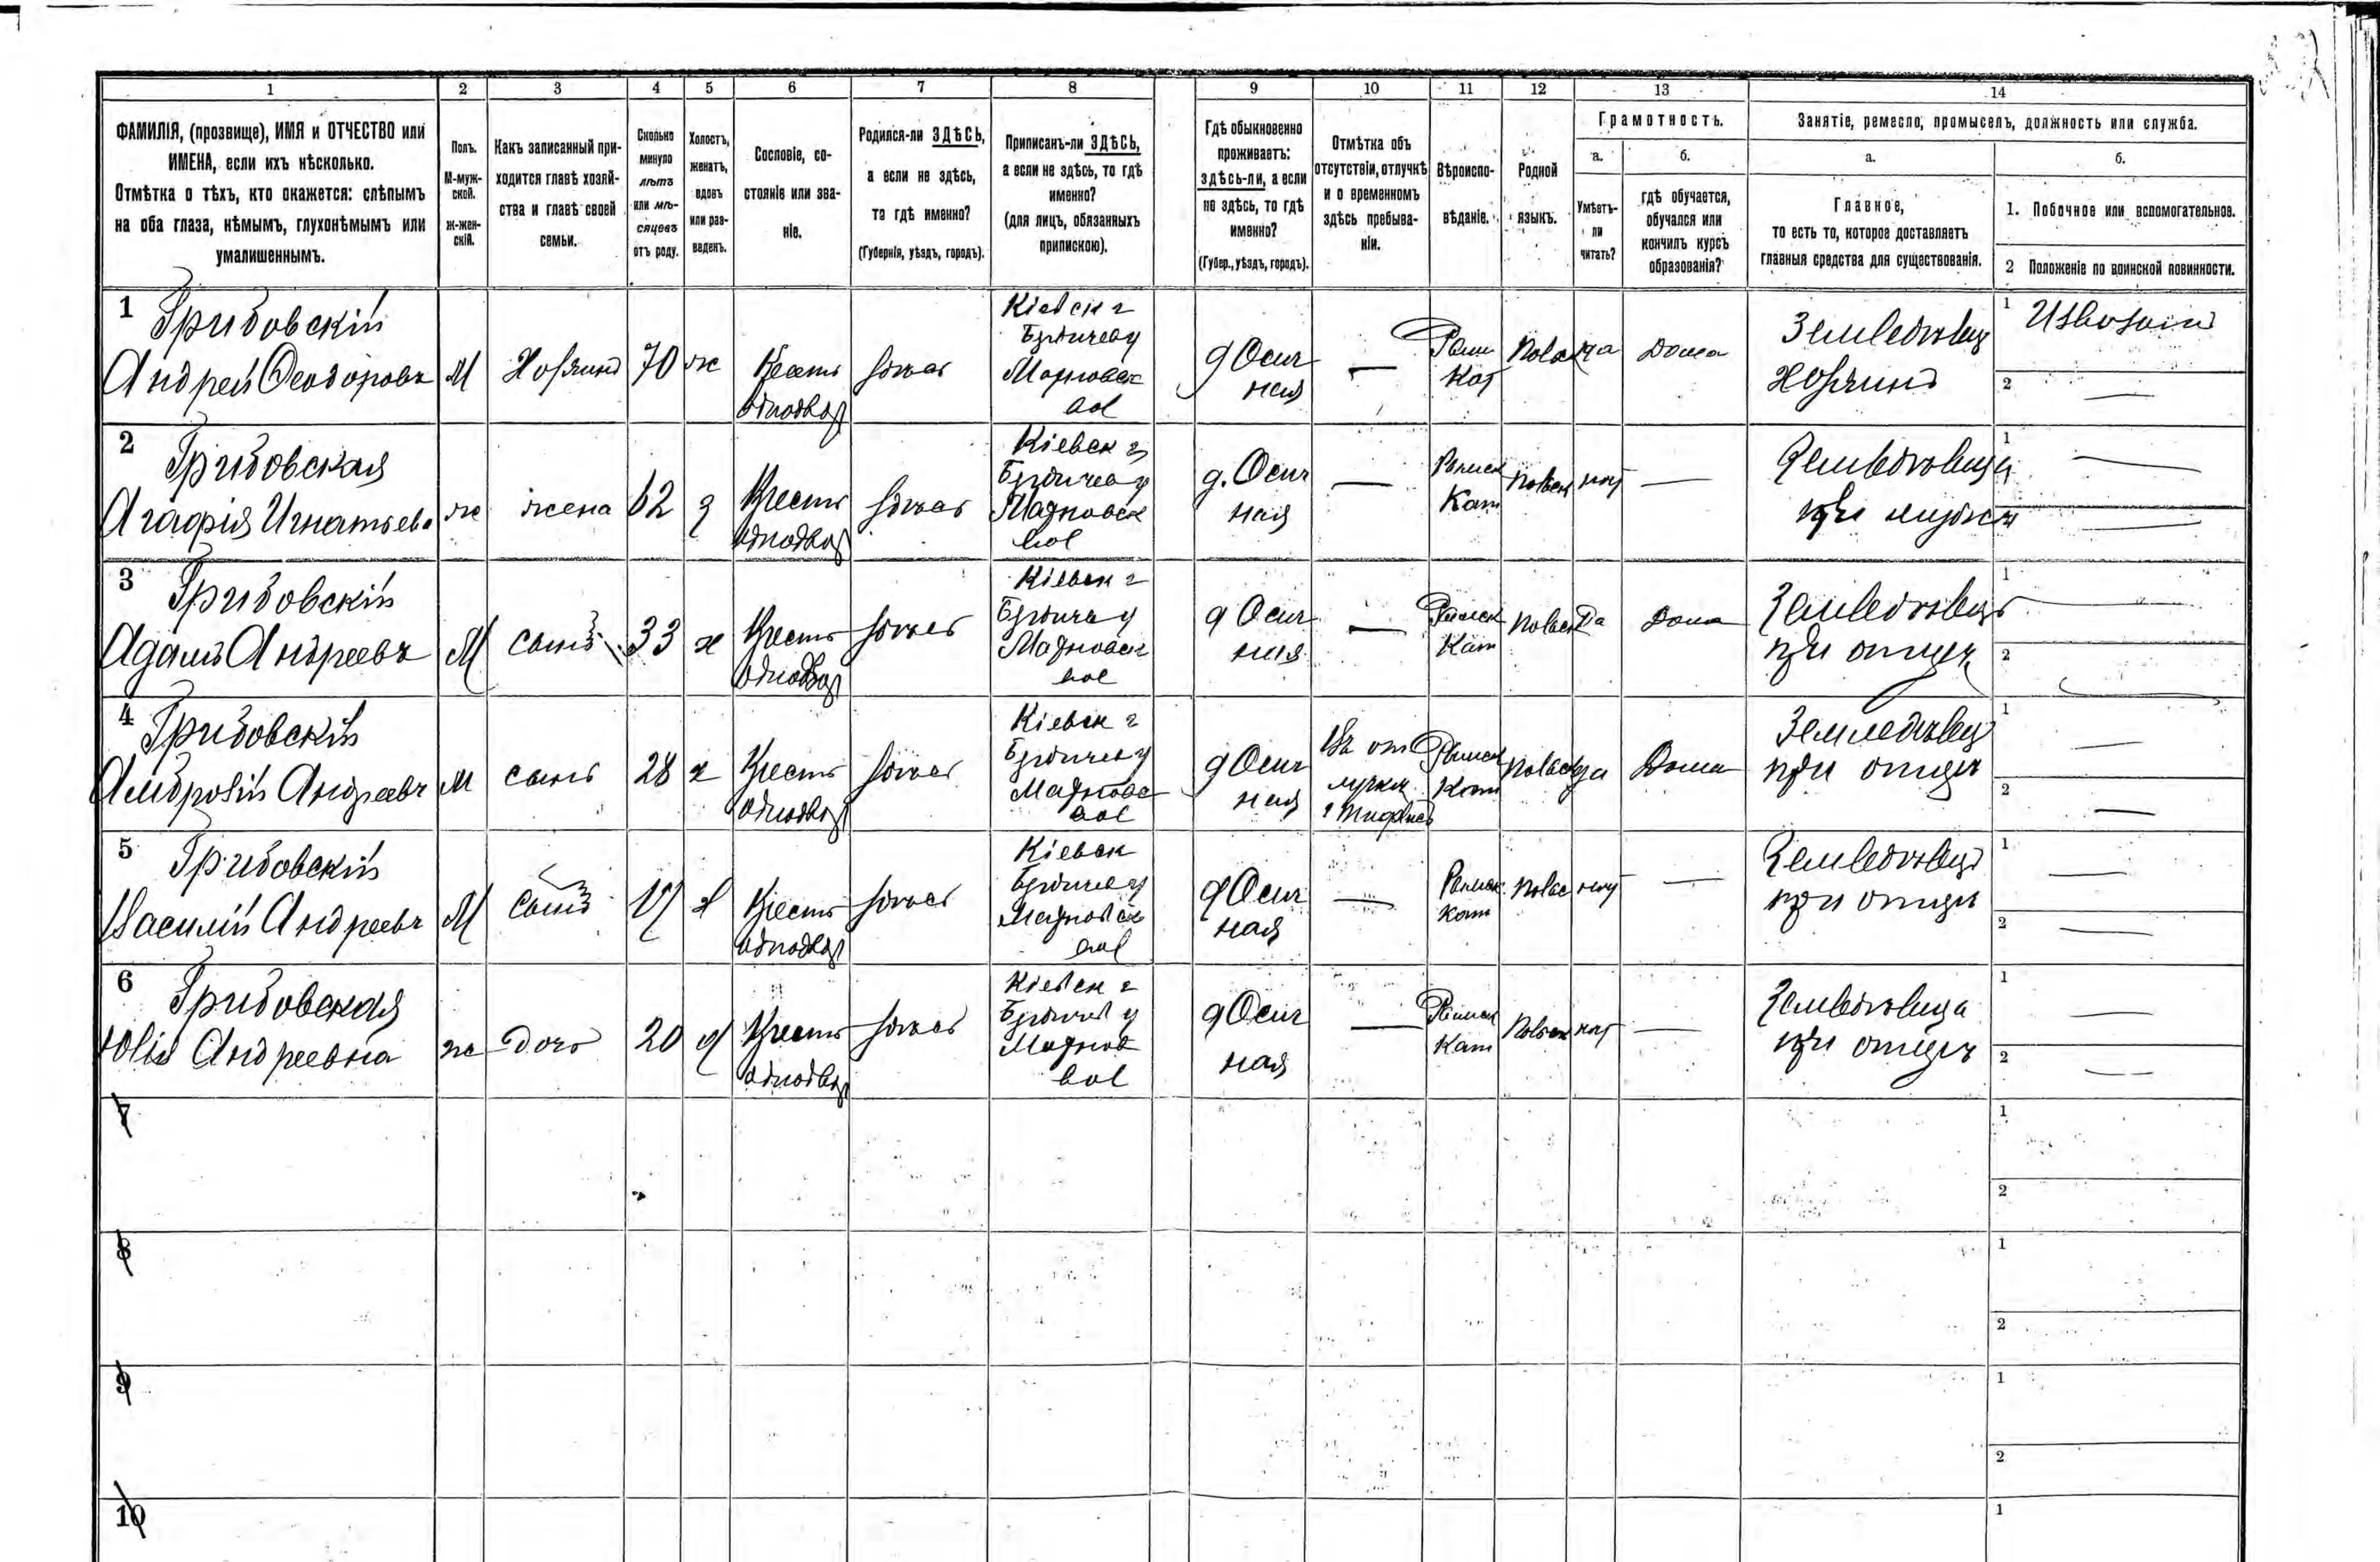 1 2 3 4 5 6 7 8 9 10 11 12 13 14
ФАМИЛІЯ, (прозвище), ИМЯ и ОТЧЕСТВО или
ИМЕНА, если ихъ нѣсколько.
Отмѣтка о тѣхъ, кто окажется: слѣпымъ
на оба глаза, нѣмымъ, глухонѣмымъ или
умалишеннымъ.
Полъ.
М-муж-
ской.
ж-жен-
скій.
Какъ записанный при-
ходится главѣ хозяй-
ства и главѣ своей
семьи.
Сколько
минуло
лѣтъ
или мѣ-
сяцевъ
отъ роду.
Холостъ,
женатъ,
вдовъ
или раз-
веденъ.
Сословіе, со-
стояніе или зва-
ніе.
Родился-ли ЗДѢСЬ,
а если не здѣсь,
то гдѣ именно?
(Губернія, уѣздъ, городъ).
Приписанъ-ли ЗДѢСЬ,
а если не здѣсь, то гдѣ
именно?
(для лицъ, обязанныхъ
припискою).
Гдѣ обыкновенно
проживаетъ:
здѣсь-ли, а если
не здѣсь, то гдѣ
именно?
(Губер., уѣздъ, городъ).
Отмѣтка объ
отсутствіи, отлучкѣ
и о временномъ
здѣсь пребыва-
ніи.
Вѣроиспо-
вѣданіе.
Родной
языкъ.
Грамотность.
а.
Умѣетъ-
ли
читать?
б.
гдѣ обучается,
обучался или
кончилъ курсъ
образованія?
Занятіе, ремесло, промыселъ, должность или служба.
а.
Главное,
то есть то, которое доставляетъ
главныя средства для существованія.
б.
1. Побочное или вспомогательное.
2 Положеніе по воинской повинности.
1 Грибовскій
Андрей Феодоровъ
М
Хозяинъ
70
ж
Крестъ
однодвор
здѣсь
Кіевск г
Бердичев у
вол
д Осич
ная
—
Рим
Кат
Польс
да
Дома
Земледѣлец
хозяинъ
1 Извозчик
2 —
2 Грибовская
Агафія Игнатьева
ж
жена
62
з
Крестъ
однодвор
здѣсь
Кіевск г
Бердиче у
вол
д. Осич
ная
—
Римск
Кат
Польск
нет
—
Земледѣлица
при мужѣ
1 —
—
3 Грибовскій
Адамъ Андреевъ
М
сынъ
33
х
Крестъ
однодвор
здѣсь
Кіевск г
Бердиче у
вол
д Осич
ная
—
Римск
Кат
Польск
Да
Дома
Земледѣлецъ
при отцѣ
1 —
2 —
4 Грибовскій
Амброзій Андреевъ
М
сынъ
28
х
Крестъ
однодвор
здѣсь
Кіевск г
Бердичев у
вол
д Осич
ная
Въ от
лучкѣ
г Тифлис
Римск
Кат
Польск
да
Дома
Земледѣлец
при отцѣ
1 —
2 —
5 Грибовскій
Василій Андреевъ
М
сынъ
х
Крестъ
однодвор
здѣсь
Кіевск
Бердиче у
вол
д Осич
ная
—
Римск
Кат
Польс
нет
—
Земледѣлецъ
при отцѣ
1 —
2 —
6 Грибовская
Юлія Андреевна
ж
дочь
20
д
Крестъ
однодвор
здѣсь
Кіевск г
Бердичев у
вол
д Осич
ная
—
Римск
Кат
Польск
нет
—
Земледѣлица
при отцѣ
1 —
2 —
7
1
2
8
1
2
9
1
2
10
1